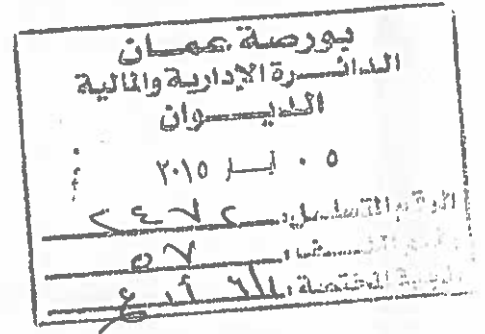 بورصة عمان
الدائرة الإدارية والمالية
الديوان
٠٥ أيار ٢٠١٥
الرقم المتسلسل: ٢٤٧٢
٥٧
الجهة المختصة: